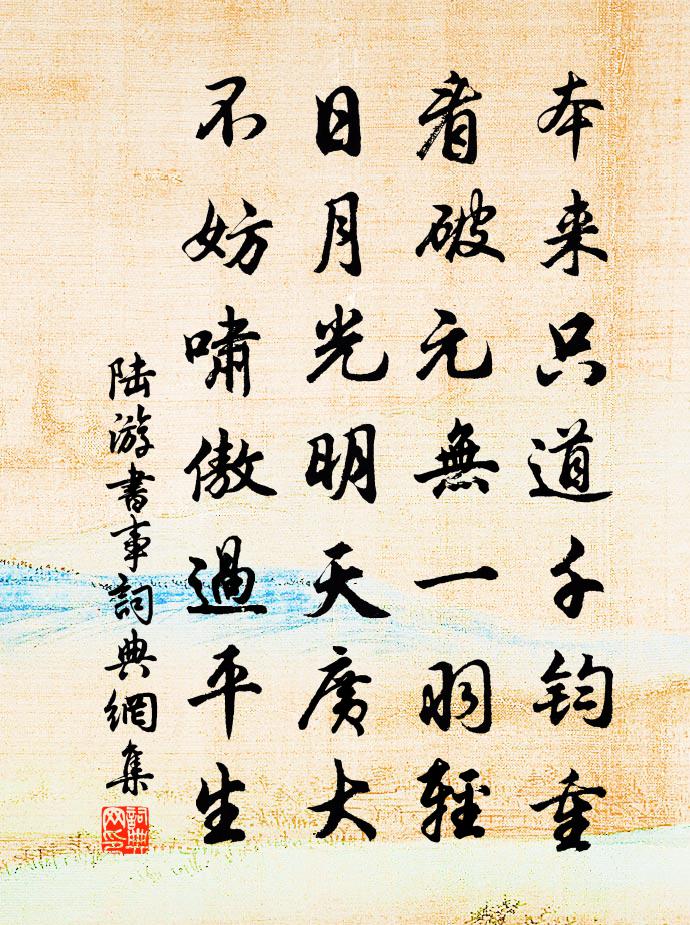 本来只道千鈞重
看破元無一羽輕
日月光明天廣大
不妨嘯傲過平生
陆游書事詞典網集
詞典网印